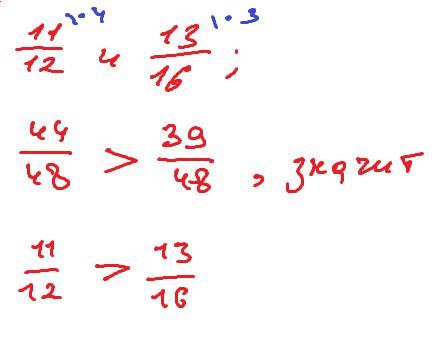 11/12 |·4 и 13/16 |·3 ;
44/48 > 39/48 , значит
11/12 > 13/16